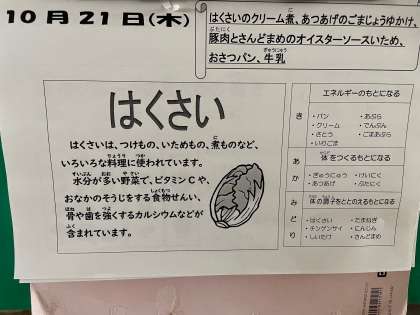 10月21日(木)
はくさいのクリーム煮、あつあげのごまじょうゆかけ、
豚肉とさんどまめのオイスターソースいため、
おさつパン、牛乳
はくさい
はくさいは、つけもの、いためもの、煮ものなど、
いろいろな料理に使われています。
水分が多い野菜で、ビタミンCや、
おなかのそうじをする食物せんい、
骨や歯を強くするカルシウムなどが
含まれています。
エネルギーのもとになる
き
・パン ・あぶら
・クリーム ・でんぷん
・さとう ・ごまあぶら
・いりごま
体をつくるもとになる
あか
・ぎゅうにゅう ・けいにく
・あつあげ ・ぶたにく
体の調子をととのえるもとになる
みどり
・はくさい ・たまねぎ
・チンゲンサイ ・にんじん
・しいたけ ・さんどまめ